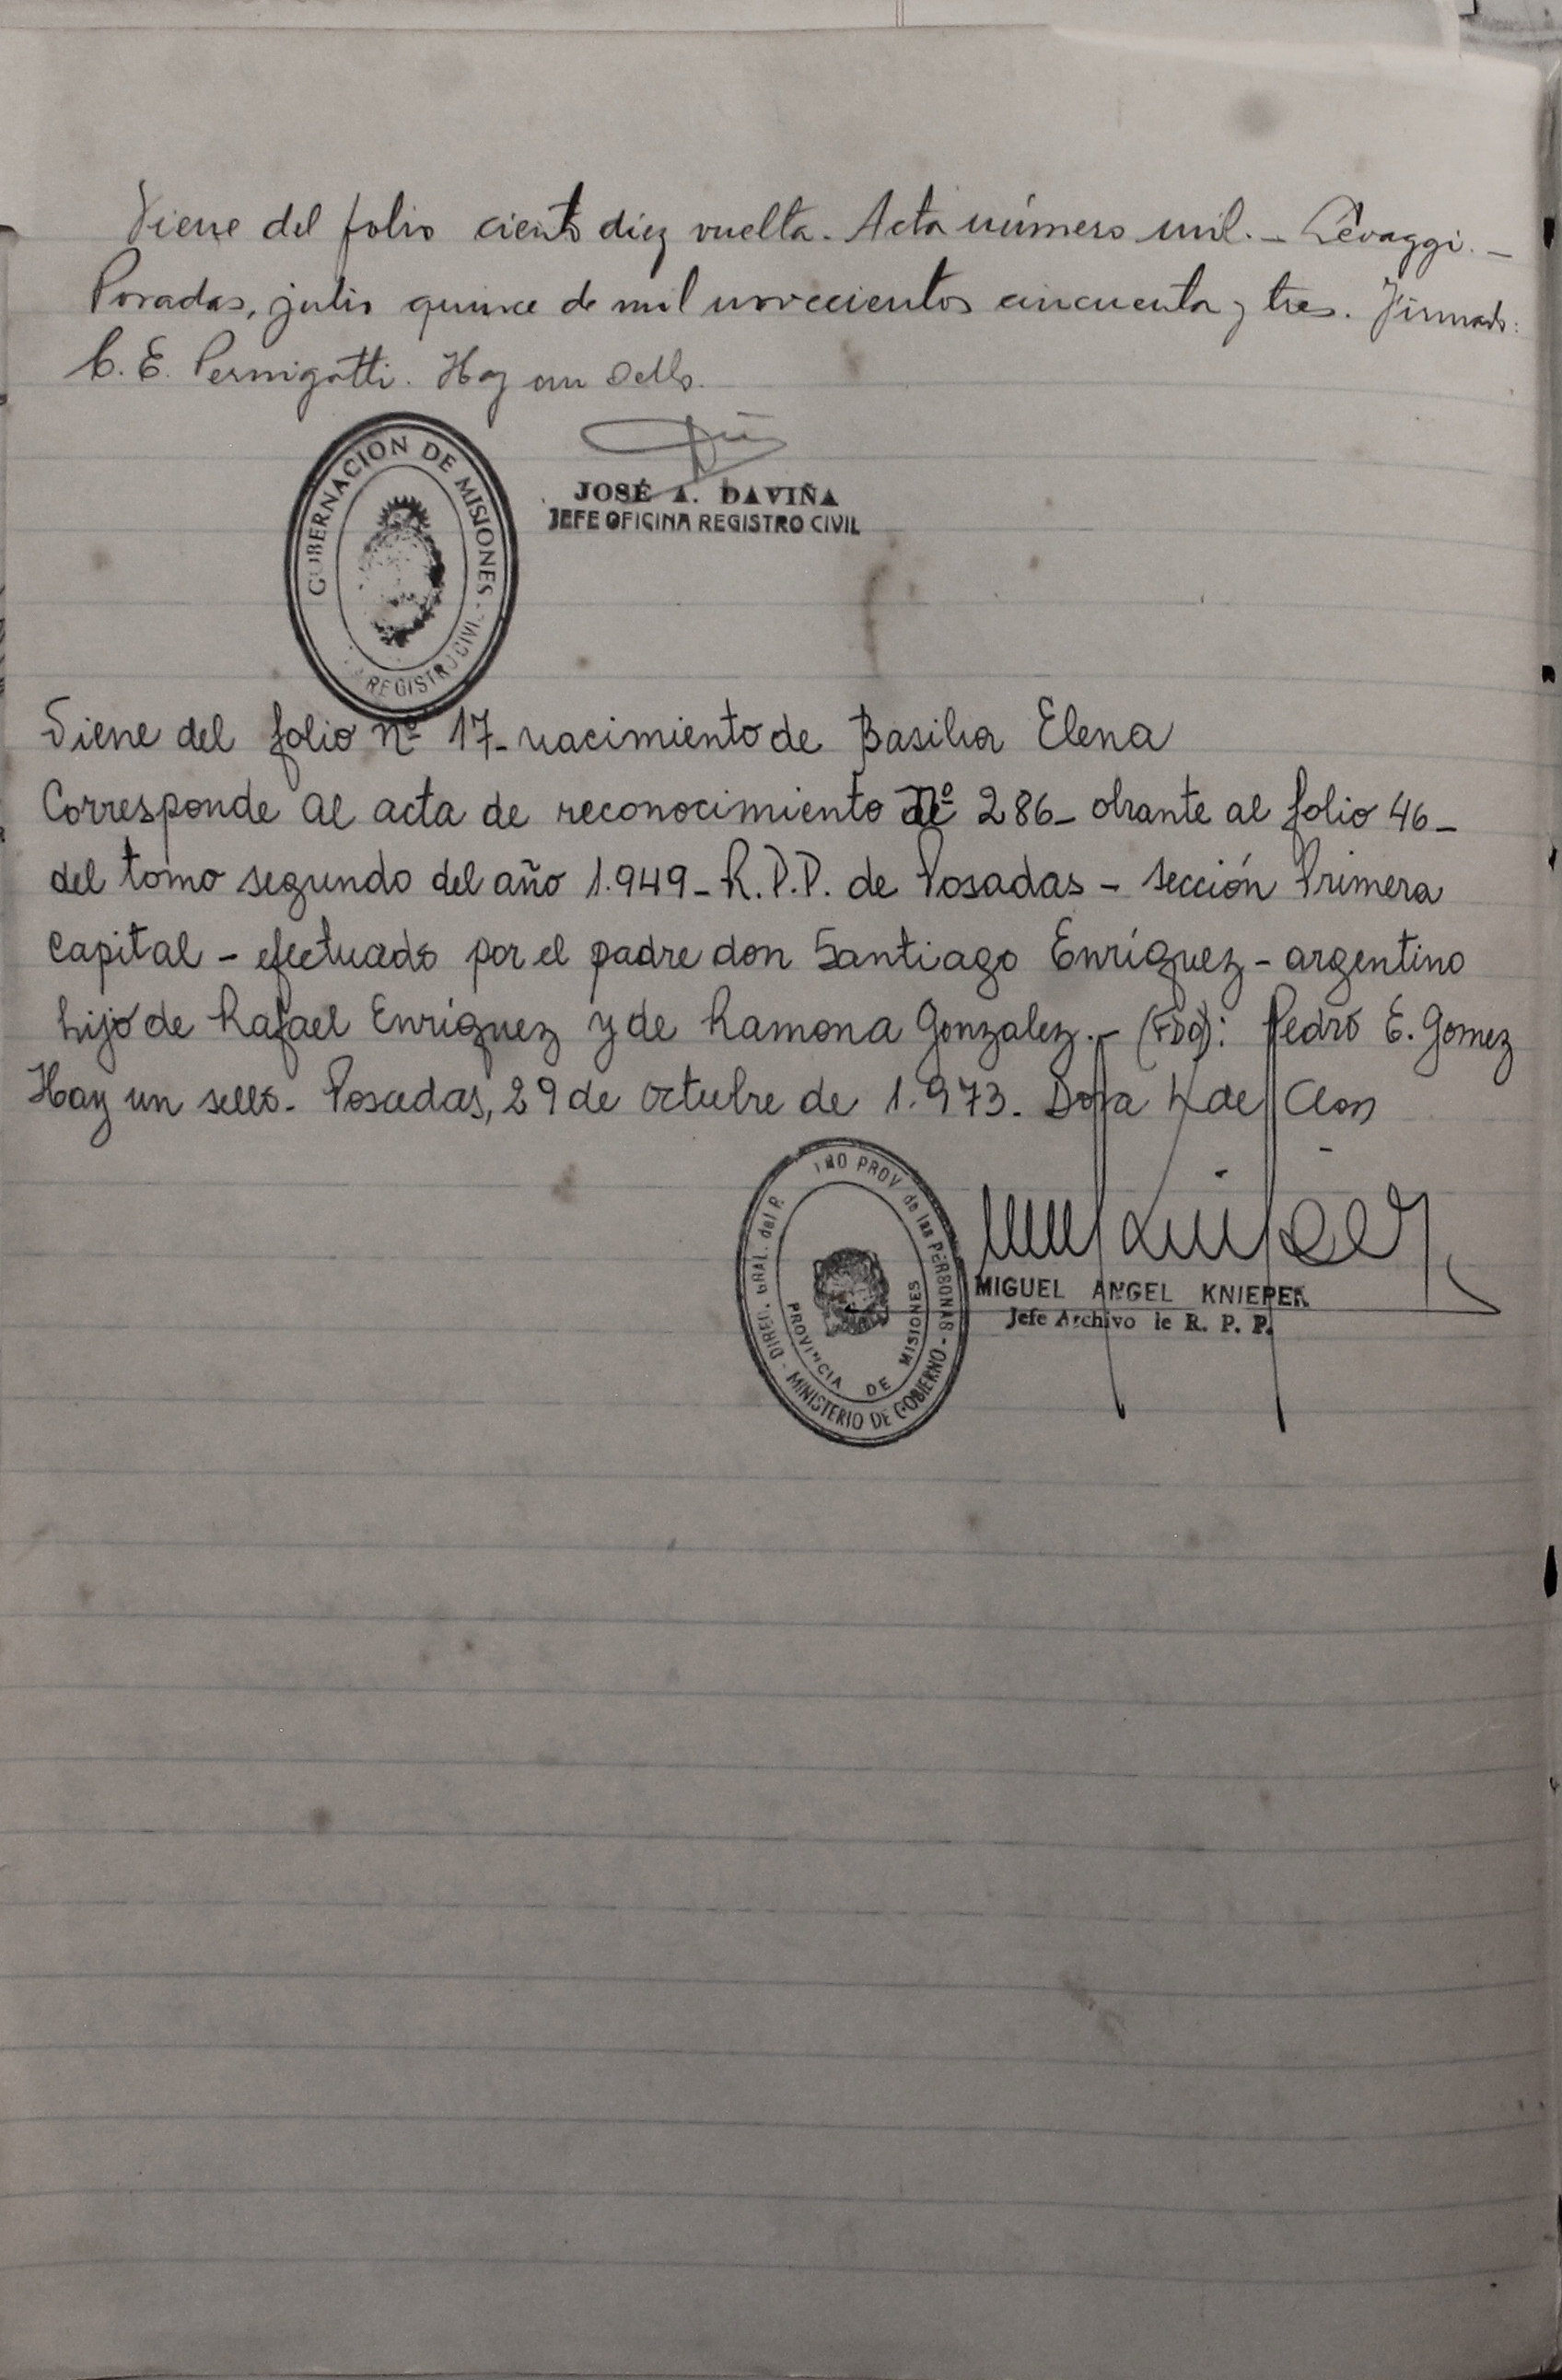 Viene del folio ciento diez vuelta. Acta número mil. - Levaggi. -
Posadas, julio quince de mil novecientos cincuenta y tres. Firmado:
C. E. Pernigotti. Hay un sello.
GOBERNACION DE MISIONES - REGISTRO CIVIL
JOSÉ A. DAVIÑA
JEFE OFICINA REGISTRO CIVIL
Viene del folio nº 17- nacimiento de Basilia Elena
Corresponde al acta de reconocimiento nº 286- obrante al folio 46-
del tomo segundo del año 1.949- R.P.P. de Posadas - sección Primera
Capital - efectuado por el padre don Santiago Enríquez - argentino
hijo de Rafael Enríquez y de Ramona Gonzalez.- (FDO): Pedro E. Gomez
Hay un sello. Posadas, 29 de Octubre de 1.973. Dora de
DIREC. GRAL. del R. PROV. de las PERSONAS - MINISTERIO DE GOBIERNO -
PROVINCIA DE MISIONES
MIGUEL ANGEL KNIEPER
Jefe Archivo de R. P. P.